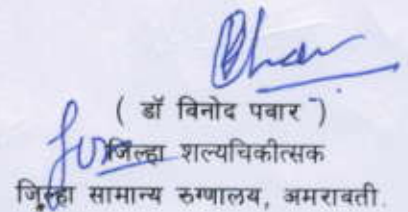 ( डॉ विनोद पवार )
जिल्हा शल्यचिकीत्सक
जिल्हा सामान्य रुग्णालय, अमरावती.